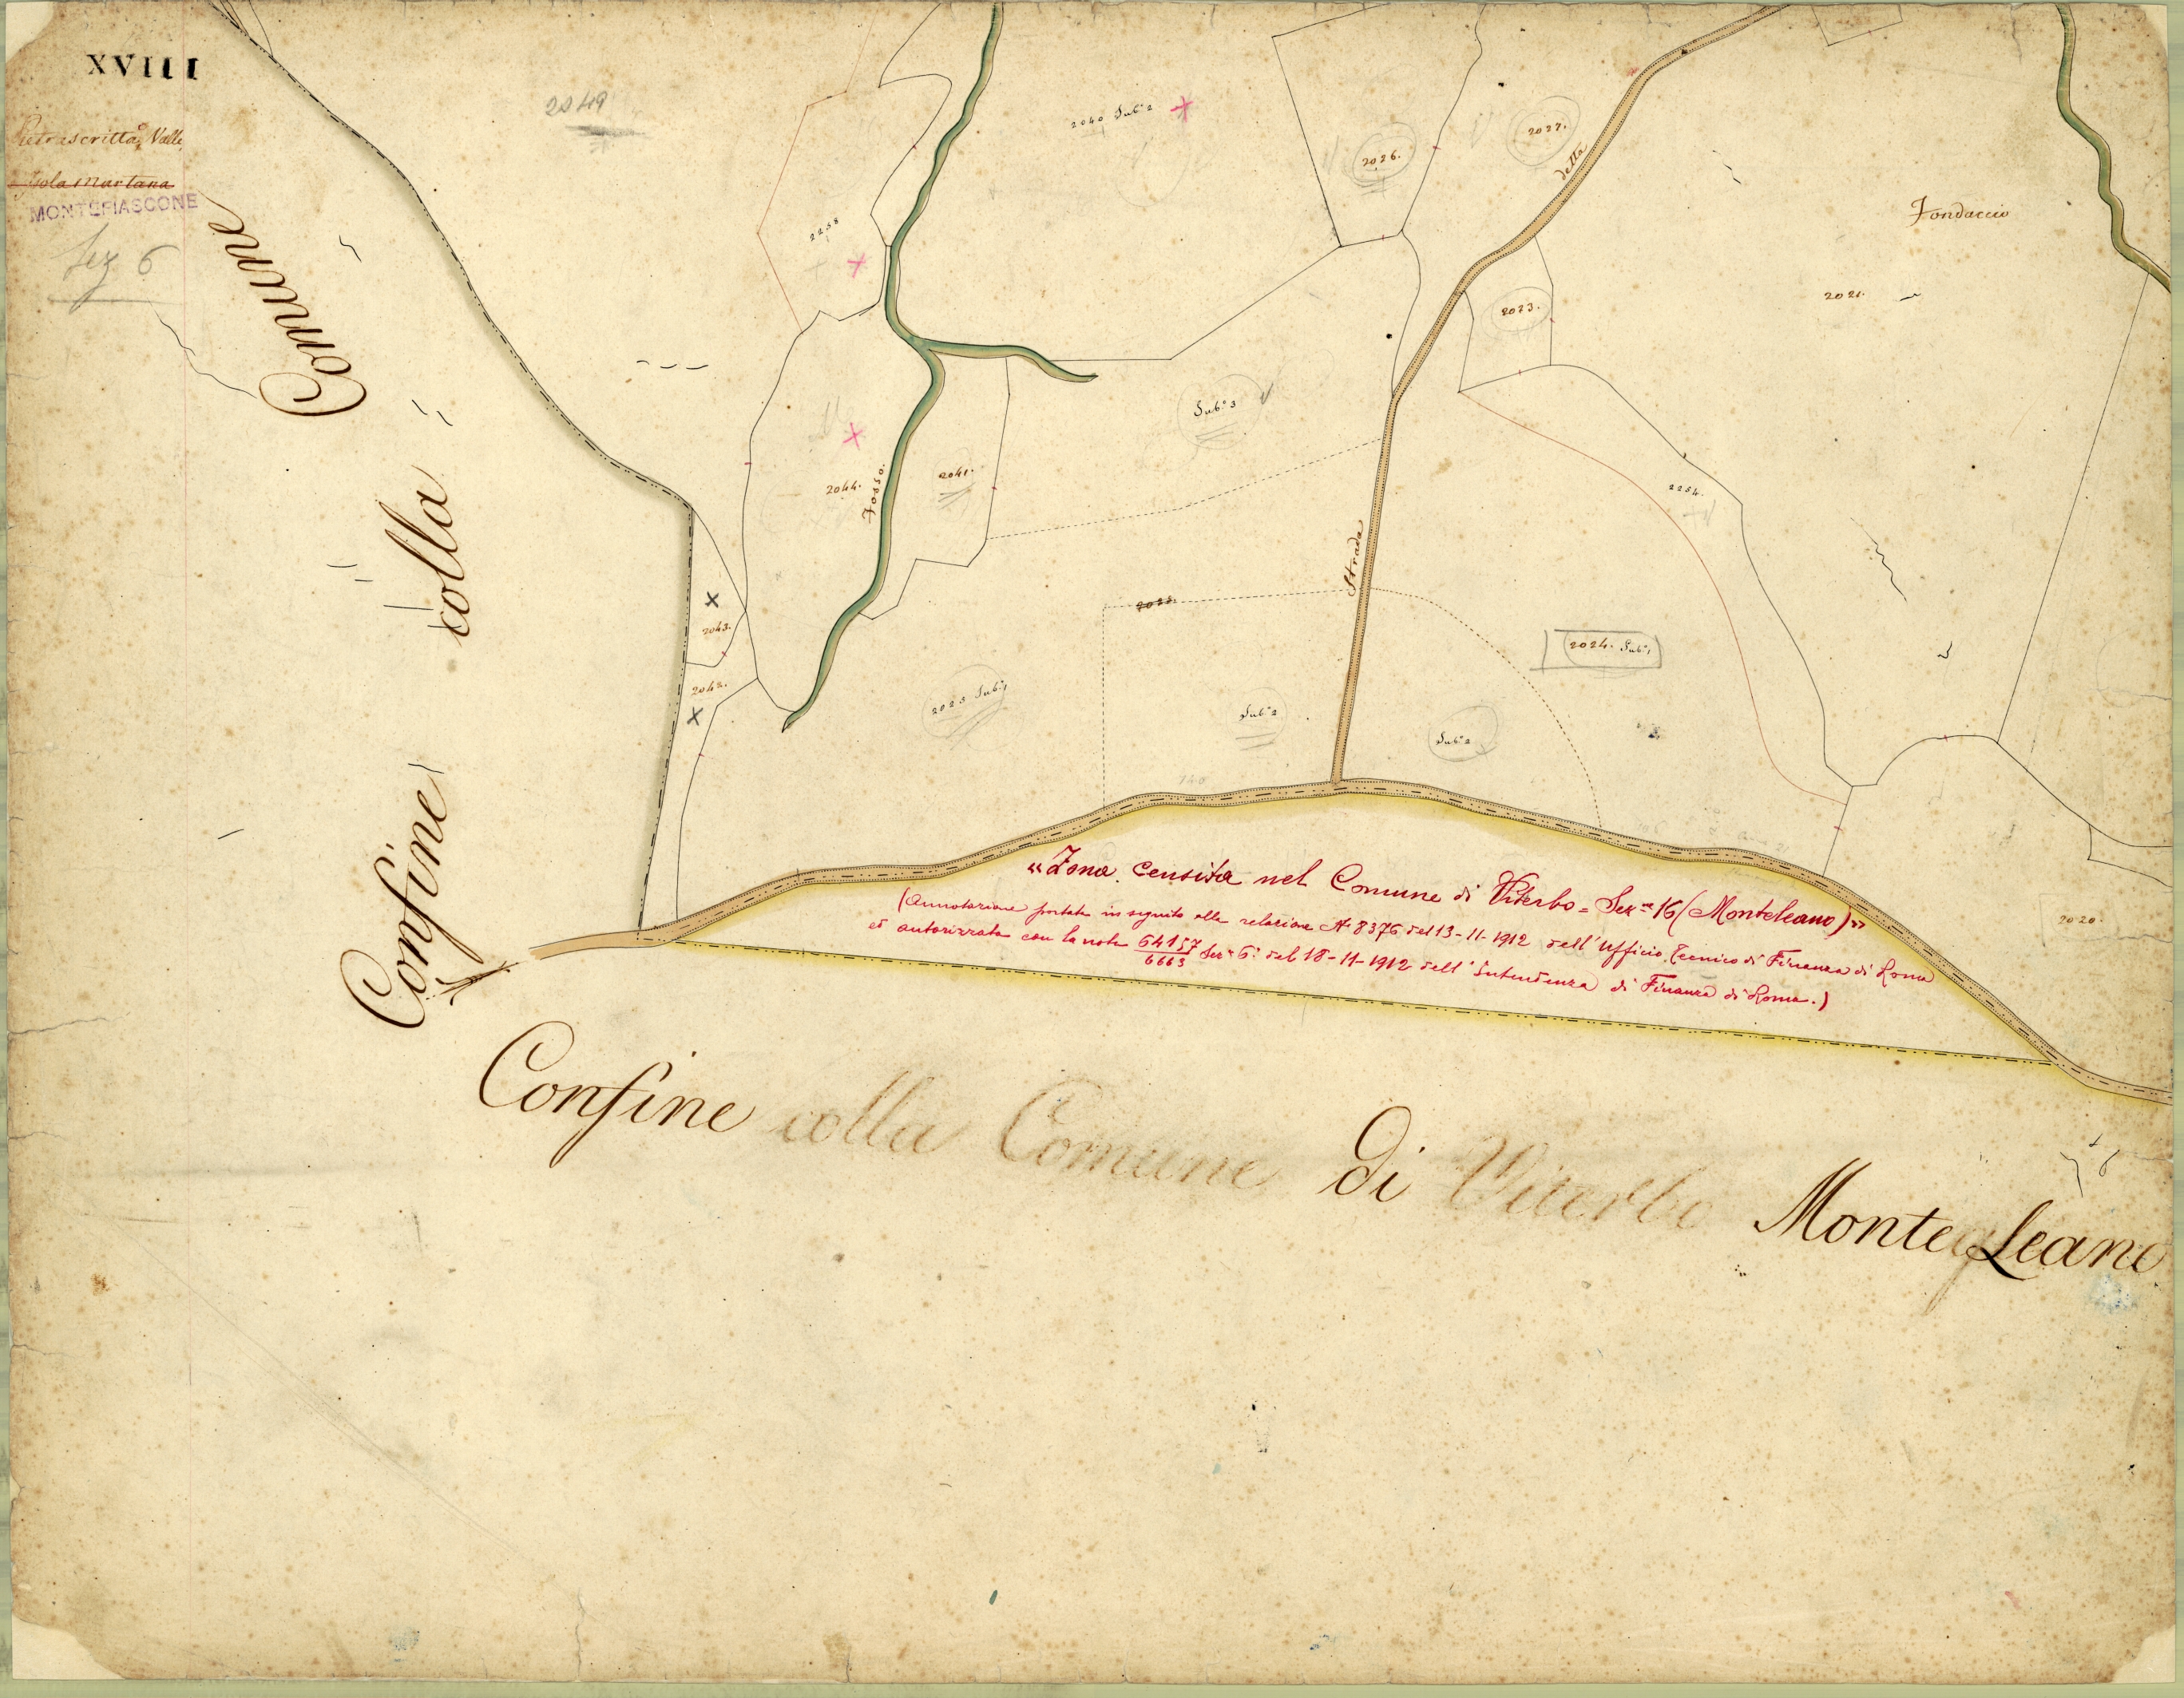 XVIII
Pietrascritta, Valle,
Isola Martana
MONTEFIASCONE
Sez 6
2049
2040 Sub.° 2
2026.
2027.
della
Fondaccio
2258
2023.
2021.
Sub.° 3
2044.
Fosso.
2041.
2254.
Strada
2025.
2043.
2024. Sub.° 1
2042.
2025 Sub.° 1
Sub.° 2
Sub.° 2
140
2020.
Confine colla Comune
«Zona censita nel Comune di Viterbo = Sez.ne 16 (Monteleano)»
(Annotazione portata in seguito alla relazione N. 8376 del 13-11-1912 dell'Ufficio Tecnico di Finanza di Roma
ed autorizzata con la nota 64157/6663 Sez.e 6.a del 18-11-1912 dell'Intendenza di Finanza di Roma.)
Confine colla Comune di Viterbo Monte Leano